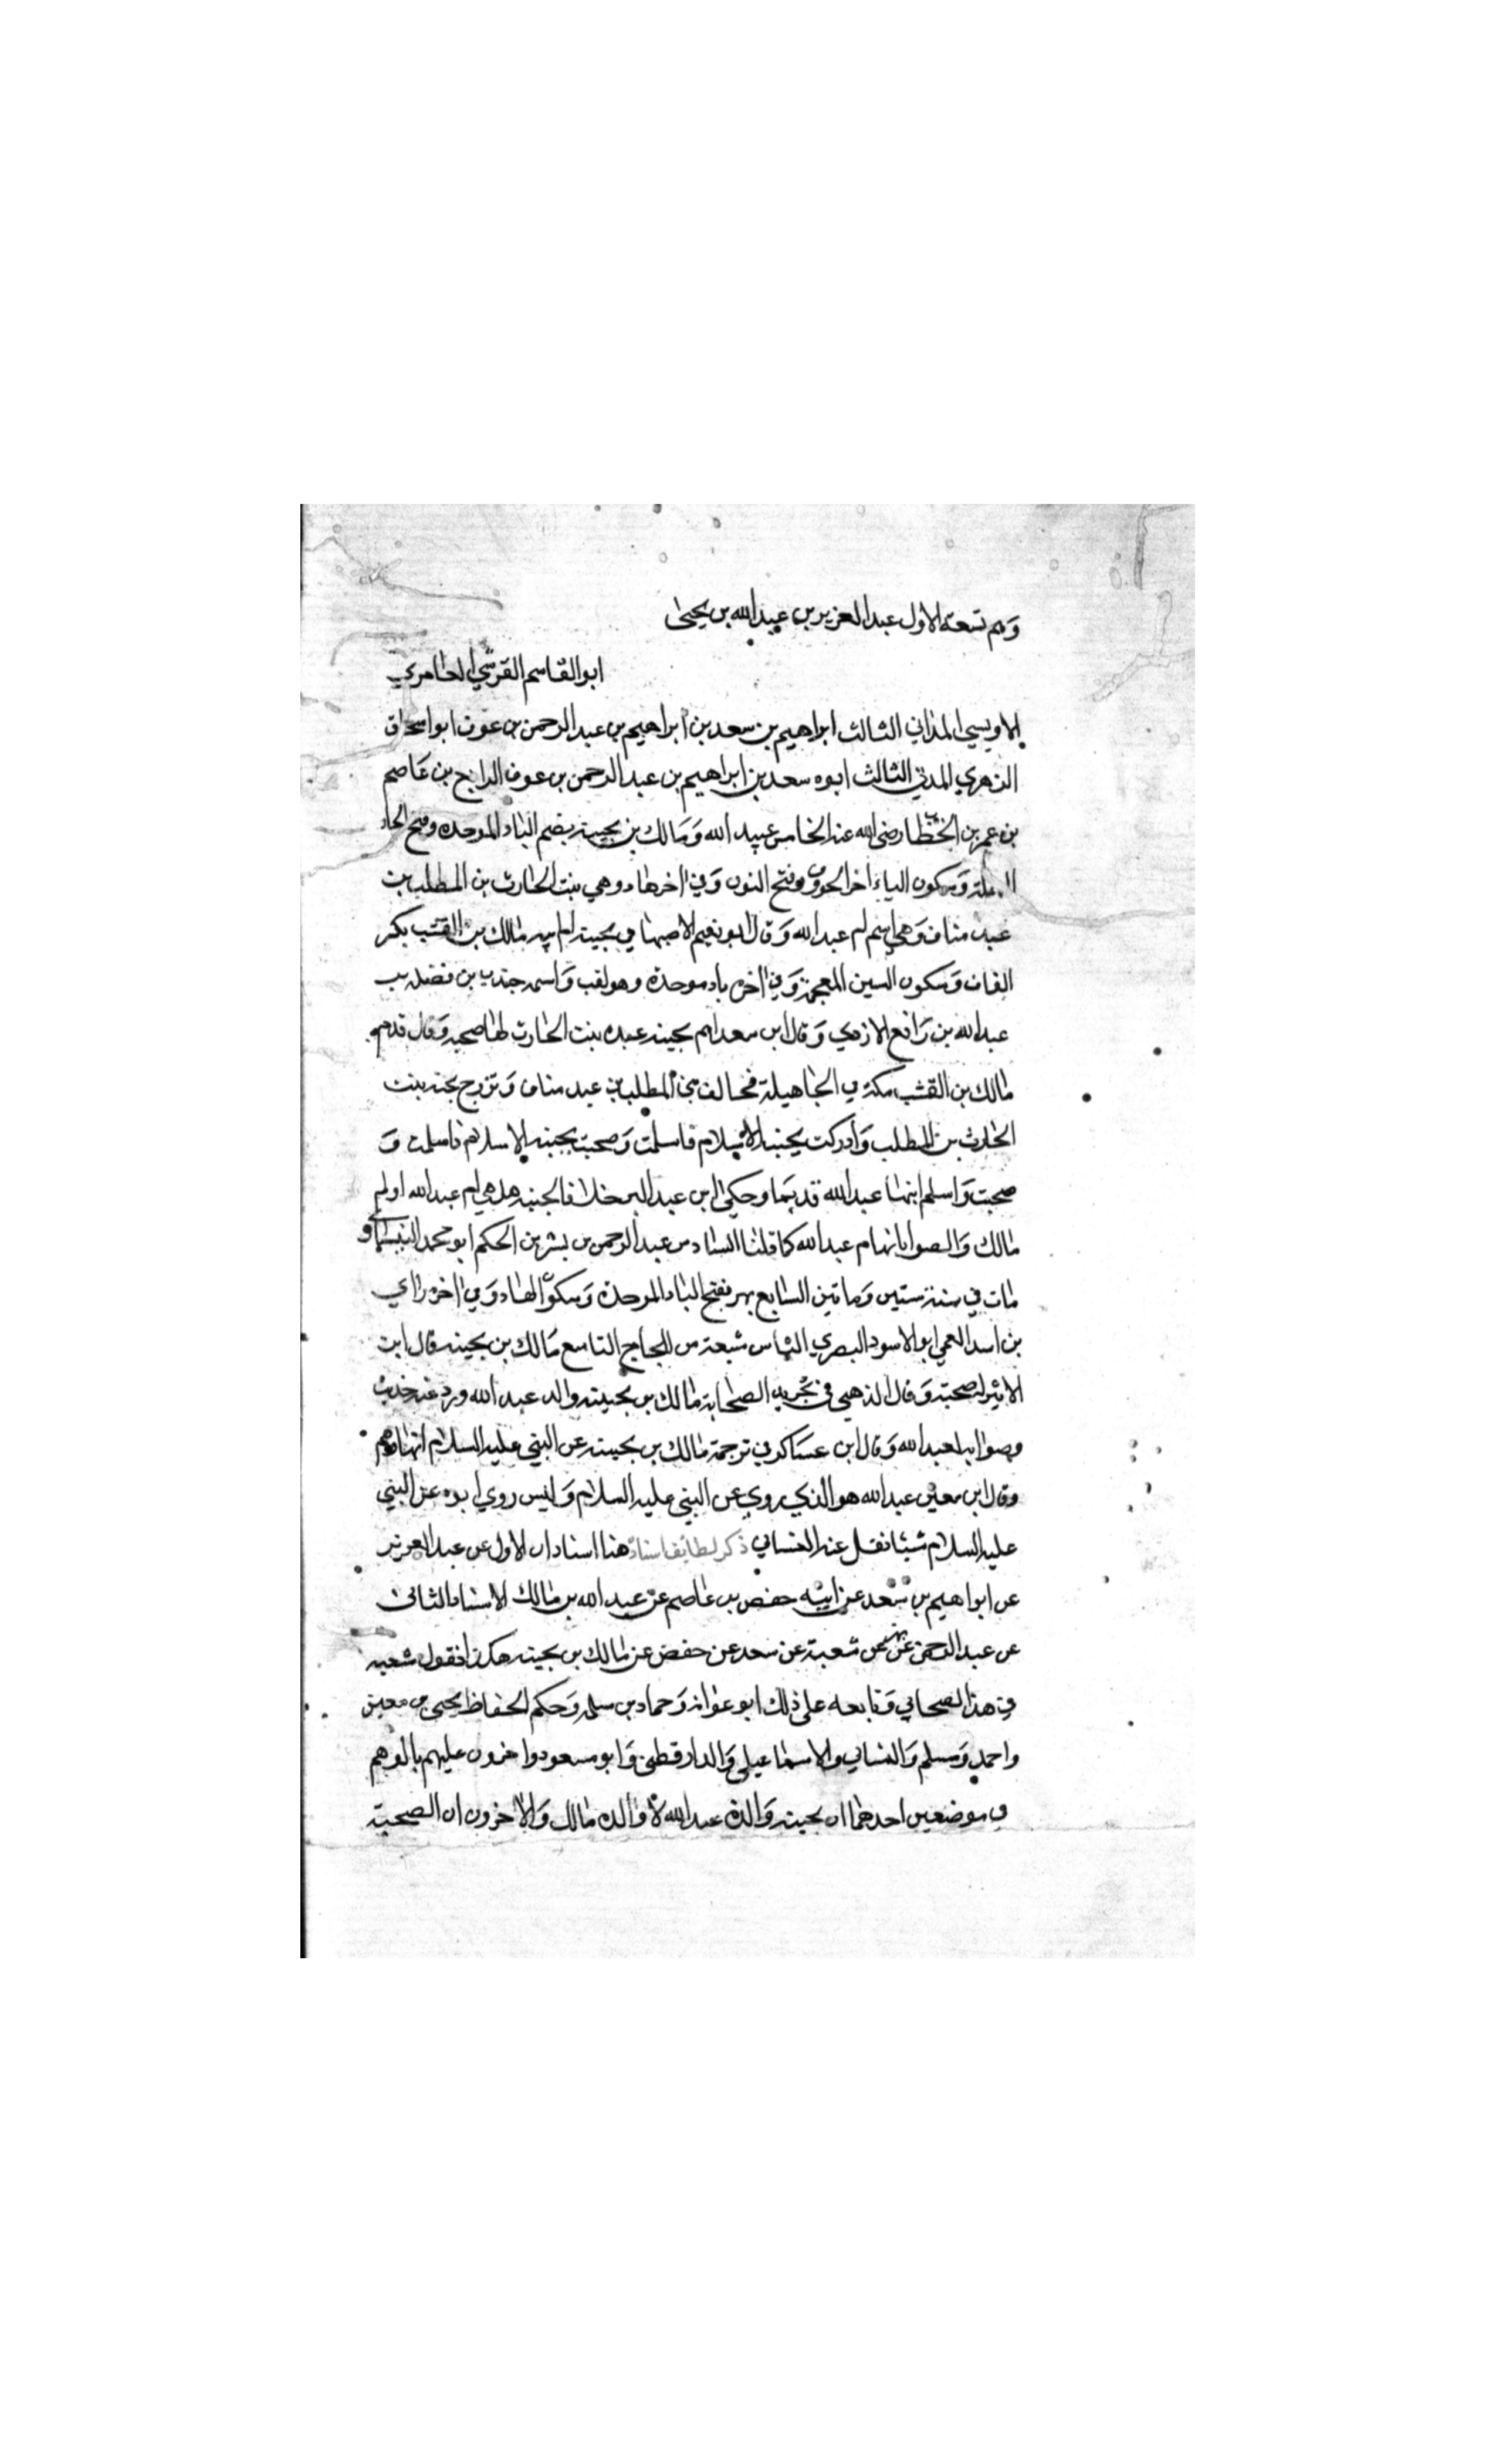 وهم تسعة الاول عبد العزيز بن عبد الله بن يحيى
ابو القاسم القرشي العامري
الاويسي المداني الثالث ابراهيم بن سعد بن ابراهيم بن عبد الرحمن بن عوف ابو اسحاق
الزهري المدني الثالث ابوه سعد بن ابراهيم بن عبد الرحمن بن عوف الرابع بن عاصم
بن عمر بن الخطاب رضى الله عنه الخامس عبد الله ومالك بن بحينة بضم الباء الموحدة وفتح الحاء
المهملة وسكون الياء اخر الحروف وفتح النون وفي اخرها ه وهي بنت الحارث بن المطلب بن
عبد مناف وهي اسم ام عبد الله وقال ابو نعيم الاصبهاني بحينة ام ابيه مالك بن القشب بكسر
القاف وسكون السين المعجمة وفي اخره باء موحدة وهو لقب واسمه جندب بن فضلة بن
عبد الله بن رافع الازدي وقال ابن سعد ام بحينة عبدة بنت الحارث لها صحبة وقال قدم
مالك بن القشب مكة في الجاهيلة فحالف بني المطلب بن عبد مناف وتزوج بحينة بنت
الحارث بن المطلب وادركت بحينة الاسلام فاسلمت وصحبت بحينة الاسلام فاسلمت و
صحبت واسلم ابنها عبد الله قديما وحكى ابن عبد البر خلافا لبحينة هل هي ام عبد الله او ام
مالك والصواب انها ام عبد الله كما قلنا السادس عبد الرحمن بن بشر بن الحكم ابو محمد
مات في سنة ستين وماتين السابع بهز بفتح الباء الموحدة وسكون الهاء وفي اخره زاي
بن اسد العمي ابو الاسود البصري الثامن شعبة من الحجاج التاسع مالك بن بحينة قال ابن
الاثير له صحبة وقال الذهبي في تجريد الصحابة مالك بن بحينة والد عبد الله ورد عنه حديث
وصوابه لعبد الله وقال ابن عساكر في ترجمة مالك بن بحينة عن النبي عليه السلام انها وهم
وقال ابن معين عبد الله هو الذي روي عن النبي عليه السلام وليس روي ابوه عن النبي
عليه السلام شيئا نقل عنه الغساني ذكر لطائف اسناده هنا اسنادان الاول عن عبد العزيز
عن ابواهيم بن سعد عن ابيه حفص بن عاصم عن عبد الله بن مالك الاسناد الثاني
عن عبد الرحمن عن بهز عن شعبة عن سعد عن حفص عن مالك بن بحينة هكذا نقول شعبة
في هذا الصحابي وتابعه على ذلك ابو عوانة وحماد بن سلمة وحكم الحفاظ يحيى بن معين
واحمد ومسلم والنسائي والاسماعيلي والدارقطني وابو مسعود واخرون عليهم بالوهم
في موضعين احدهما ان بحينة والدة عبد الله لا والده مالك والاخرون ان الصحبة